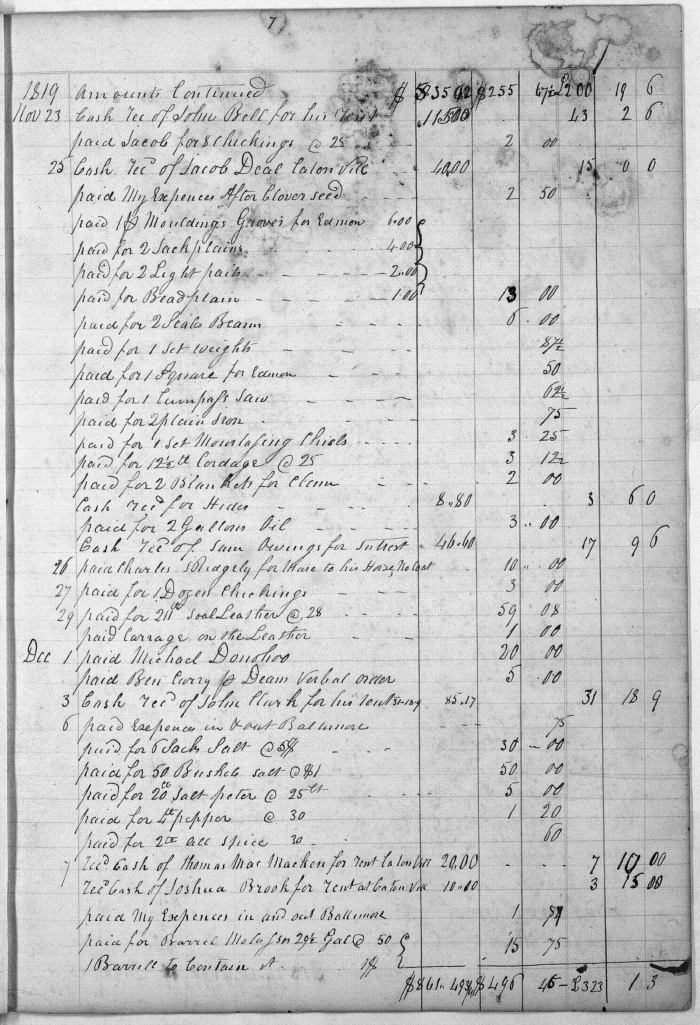 7
1819 Amounts Continued $ 255 67½ £200 19 6
Nov 23 Cash Rec of John Bell for his Rent 115.00 43 2 6
paid Jacob for 8 Chickings @ 25 2 00
25 Cash Recd of Jacob Deal Eaton Vill 40.00 15 0 0
paid My Expences After Clover seed 2 50
paid 1 Mouldings Groves for Edmon 6.00
paid for 2 Sack plains 4.00
paid for 2 Light pails 2.00
paid for Bead plain 1.00 13 00
paid for 2 Scale Beams 6 00
paid for 1 Set weights 87½
paid for 1 Square for Edmon 50
paid for 1 Cumpass Saw 62½
paid for 2 plain Iron 75
paid for 1 Set Mourlasing Chisls 3 25
paid for 12½ lb Cordage @ 25 3 12½
paid for 2 Blankets for Clem 2 00
Cash Recd for Hides 8.80 3 6 0
paid for 2 Gallons Oil 3 00
Cash Recd of Sam Owings for Intrest 46.60 17 9 6
26 paid Charles S Ridgely for Mare to his Horse, No Colt 10 00
27 paid for 1 Dozen Chickings 3 00
29 paid for 211 lb Soal Leather @ 28 59 08
paid Carrage on the Leather 1 00
Dec 1 paid Michael Donohoo 20 00
paid Ben Curry p Deam Verbal order 5 00
3 Cash Recd of John Clark for his rent 31-18-9 85.17 31 18 9
6 paid Expences in & out Baltimore 75
paid for 6 Sacks Salt @ 5$ 30 00
paid for 50 Bushels salt @ $1 50 00
paid for 20 lb Salt peter @ 25 ct 5 00
paid for 4 lb pepper @ 30 1 20
paid for 2 lb all spice 30 60
7 Recd Cash of Thomas Mac Macken for rent Eaton Vill 20.00 7 10 00
Rec Cash of Joshua Brook for Rent at Eaton Vill 10.00 3 15 00
paid My Expences in and out Baltimore 1
paid for Barrel Molasses 29½ Gal @ 50 15 75
1 Barrill to Contain it 1$
$861.49 $496 45 £323 1 3